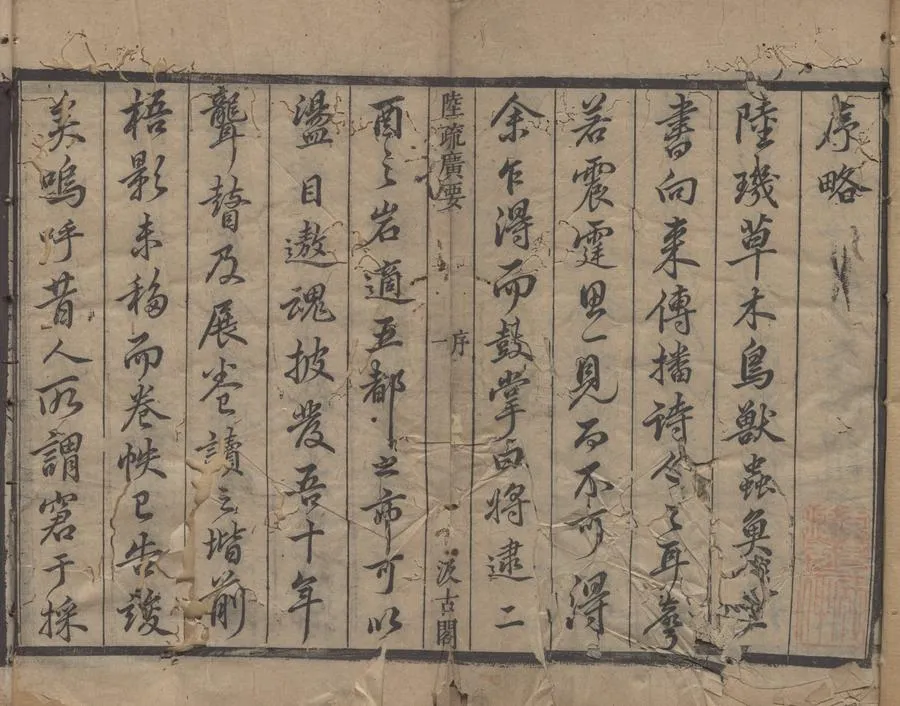 序略
陸璣草木鳥獸蟲魚
書向來傳播詩人之耳
若震霆思一見而不可得
余乍得而鼓掌曰將逮二
陸疏廣要 序 一 汲古閣
酉之岩適五都之市可以
盪目遨魂披發吾十年
聾瞽及展卷讀之堦前
梧影未移而卷帙已告竣
矣嗚呼昔人所謂窘于採